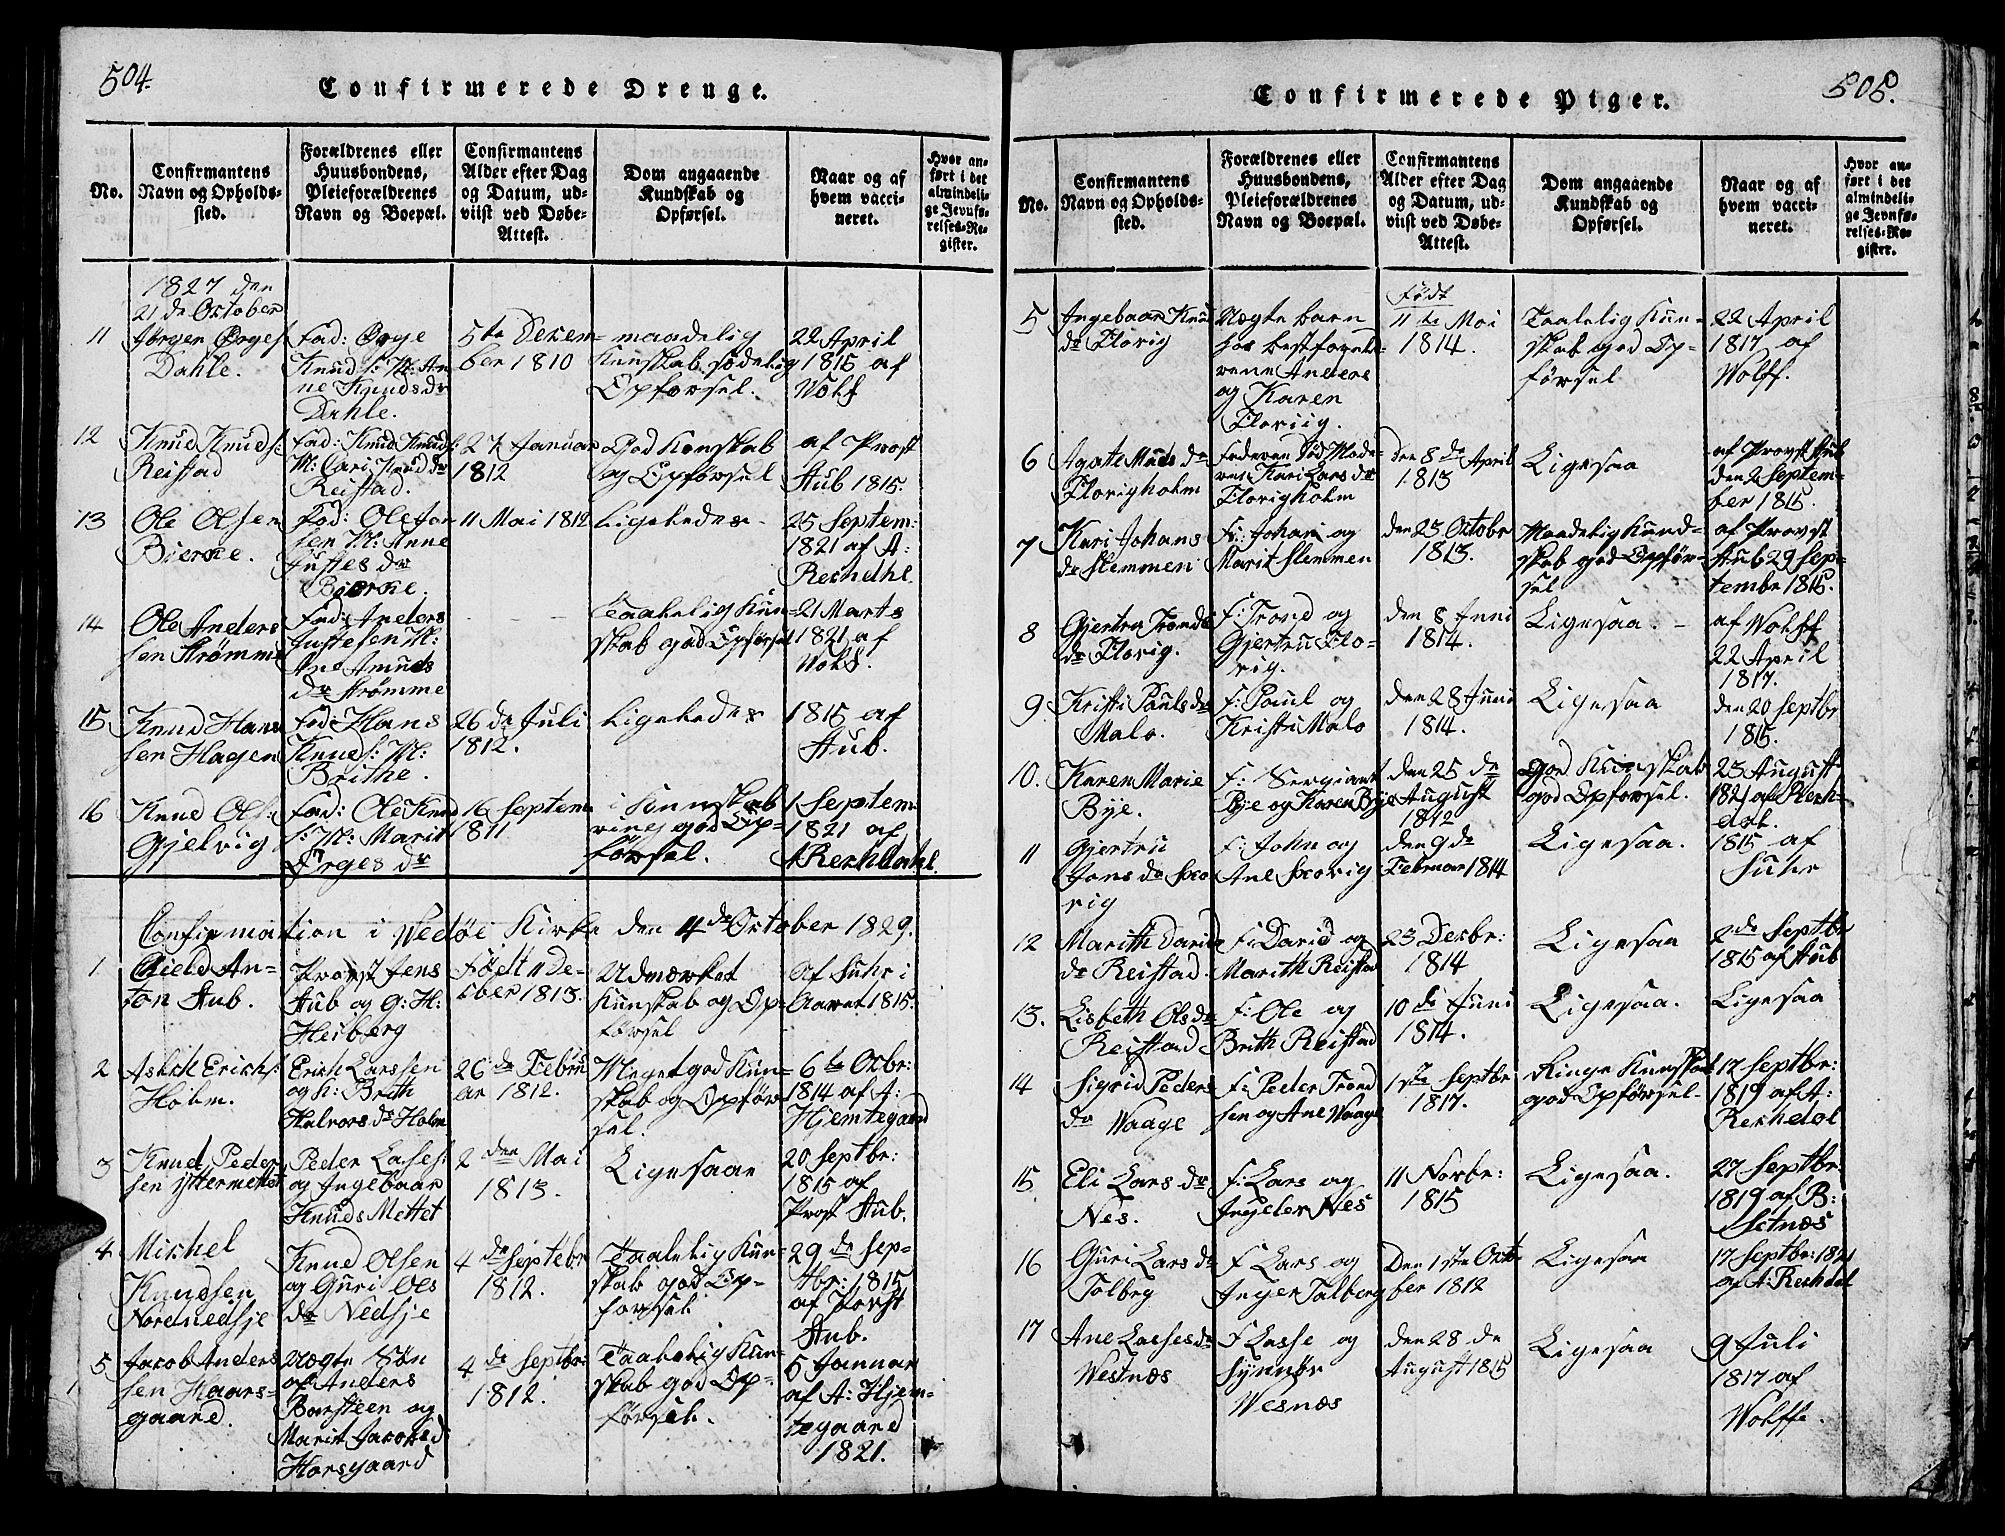 504.
Confirmerede Drenge.
No.
Confirmantens Navn og Opholdssted.
Forældrenes eller Huusbondens, Pleieforældrenes Navn og Boepæl.
Confirmantens Alder efter Dag og Datum, udviist ved Døbe-Attest.
Dom angaaende Kundskab og Opførsel.
Naar og af hvem vaccineret.
Hvor anført i det almindelige Jevnførelses-Register.
1827 den
21 de October
11
Jørgen Ørges
Dahle.
Fad: Ørge
Knuds: M: An
ne Knuds dr
Dahle.
5te Decem-
ber 1810
maadelig
Kunskab sødelig
Opførsel.
22 April
1815 af
Wolf
12
Knud Knuds:
Reistad
Fad: Knud Knuds:
M: Cari Knud dr
Reistad.
27 Januar
1812
God Konskab
og Opførsel
af Prost
Stub 1815.
13
Ole Olsen
Bierke.
Fad: Ole Jon
sen M: Anne
Justes dr
Bierke.
11 Mai 1812
Ligeledes.
25 Septem:
1821 af A:
Rechdhl
14
Ole Anders
sen Strømme
Fad: Anders
Justesen M:
Ane Amuds
dr Strømme
Taalelig Kun-
skab god Opførsel
21 Marts
1821 af
Wolf.
15
Knud Hans
sen Hagen
Fad: Hans
Knuds: M:
Brithe.
26 de Juli
1812.
Ligeledes
1815 af
Stub.
16
Knud Ols:
Gjelvig
Fad: Ole Knud
s: M: Marit
Ørges dr
16 Septem
1811
i Kunskab
ring god Op-
førsel.
1 Septem
1821 af
A Rechdahl.
Confirmation i Wedøe Kirke den 4de October 1829.
1
Kield An-
ton Stub.
Provst Jens
Stub og G: H:
Heiberg
Født 11 De-
cber 1813.
Udmærket
Kunskab og Op-
førsel
Af Suhr i
Aaret 1815.
2
Aslak Erichs:
Holm.
Erich Larssen
og K: Brith
Halvors dr Holm
26 de Febru
ar 1812.
Meget god Kun-
skab og Opfør
sel.
6te Ocbr:
1814 af A:
Hjemtegaard
3
Knud Peder
sen Yttermettet
Peder Lases:
og Ingebaar
Knuds Mettet
2 den Mai
1813.
Ligesaae
20 Septbr:
1815 af
Prost Stub.
4
Michel
Knudsen
Nordnedsje
Knud Olsen
og Guri Ols
dr Nedsje
4 de Septebr
1812.
Taalelig Kun-
skab god Op-
førsel
29 de Sep-
tbr: 1815
af Provst
Stub.
5
Jacob Anders
sen Haars-
gaard.
Uægte Søn
af Anders
Barsteen og
Marit Jacobsd
Horsgaard
4 de Septbr:
1812.
Taalelig Kun-
skab god Op-
førsel.
5 Januar
af A: Hjem-
tegaard
1821.
505.
Confirmerede Piger.
No.
Confirmantens Navn og Opholdssted.
Forældrenes eller Huusbondens, Pleieforældrenes Navn og Boepæl.
Confirmantens Alder efter Dag og Datum, udviist ved Døbe-Attest.
Dom angaaende Kundskab og Opførsel.
Naar og af hvem vaccineret.
Hvor anført i det almindelige Jevnførelses-Register.
5
Ingebaar Knu
dr Flovig
Uægte barn
hos bestforeld-
rene Anders
og Karen
Floviig.
Født
11 te Mai
1814.
Taalelig Kun-
skab god Op-
førsel
22 April
1817 af
Wolff.
6
Agate Mads dr
Flovigholm
Faderen Død Mode-
ren Kari Lars dr
Flovigholm
den 8 de April
1813
Ligesaa
af Provst Stub
den 2 Septem-
ber 1815.
7
Kari Johans
dr Slemmen
F: Johan og
Marit Slemmen
den 23 Octobr
1813.
Maadelig Kund-
skab god Opfør-
sel
af Provst
Stub 29 Sep-
tembr 1815.
8
Gjertru Tronds
dr Flovig.
F: Trond og
Gjertru Flo-
vig.
den 8 Juni
1814.
Ligesaa.
af Wolff
22 April
1817.
9
Kristi Pauls dr
Malo.
F: Paul og
Kristi Malo
den 28 Juni
1814.
Ligesaa
den 20 Septbr
1815.
10.
Karen Marie
Bye.
F: Sergiant
Bye og Karen Bye
den 25 de
August
1812
god Kunskab
god Opførsel.
23 August
1821 af Rech-
dol.
11
Gjertru
Jons dr Skov
vig
F: John og
Ane Skovig
den 9 de
Februar 1814
Ligesaa.
1815 af
Suhr
12
Marith Davids
dr Reistad.
F: David og
Marith Reistad
23 Decbr:
1814
Ligesaa
2de Septbr
1815 af Stub
13.
Lisbeth Ols dr
Reistad
F: Ole og
Brith Reistad
10 de Juni
1814.
Ligesaa.
Ligesaa
14
Sigrid Peders
dr Waage
F: Peder Trond
sen og Ane Waage
1ste Septbr
1817.
Ringe Kunskab
god Opførsel-
17 Septbr:
1819 af A:
Rechdol
15
Eli Lars dr
Nes.
F: Lars og
Ingeler Nes
11 Novbr:
1815
Ligesaa.
27 Septbr.
1819 af B:
Setnæs
16
Guri Lars dr
Tolberg
F Lars og
Inger Talberg
Den 1ste Octo
ber 1812
Ligesaa
17 Septbr: 1821
af A: Rechdal
17
Ane Lasses dr
Westnæs
F Lasse og
Synnør
Wesnæs
den 28 de
August 1815
Ligesaa
9 Juli
1817 af
Wolffe.